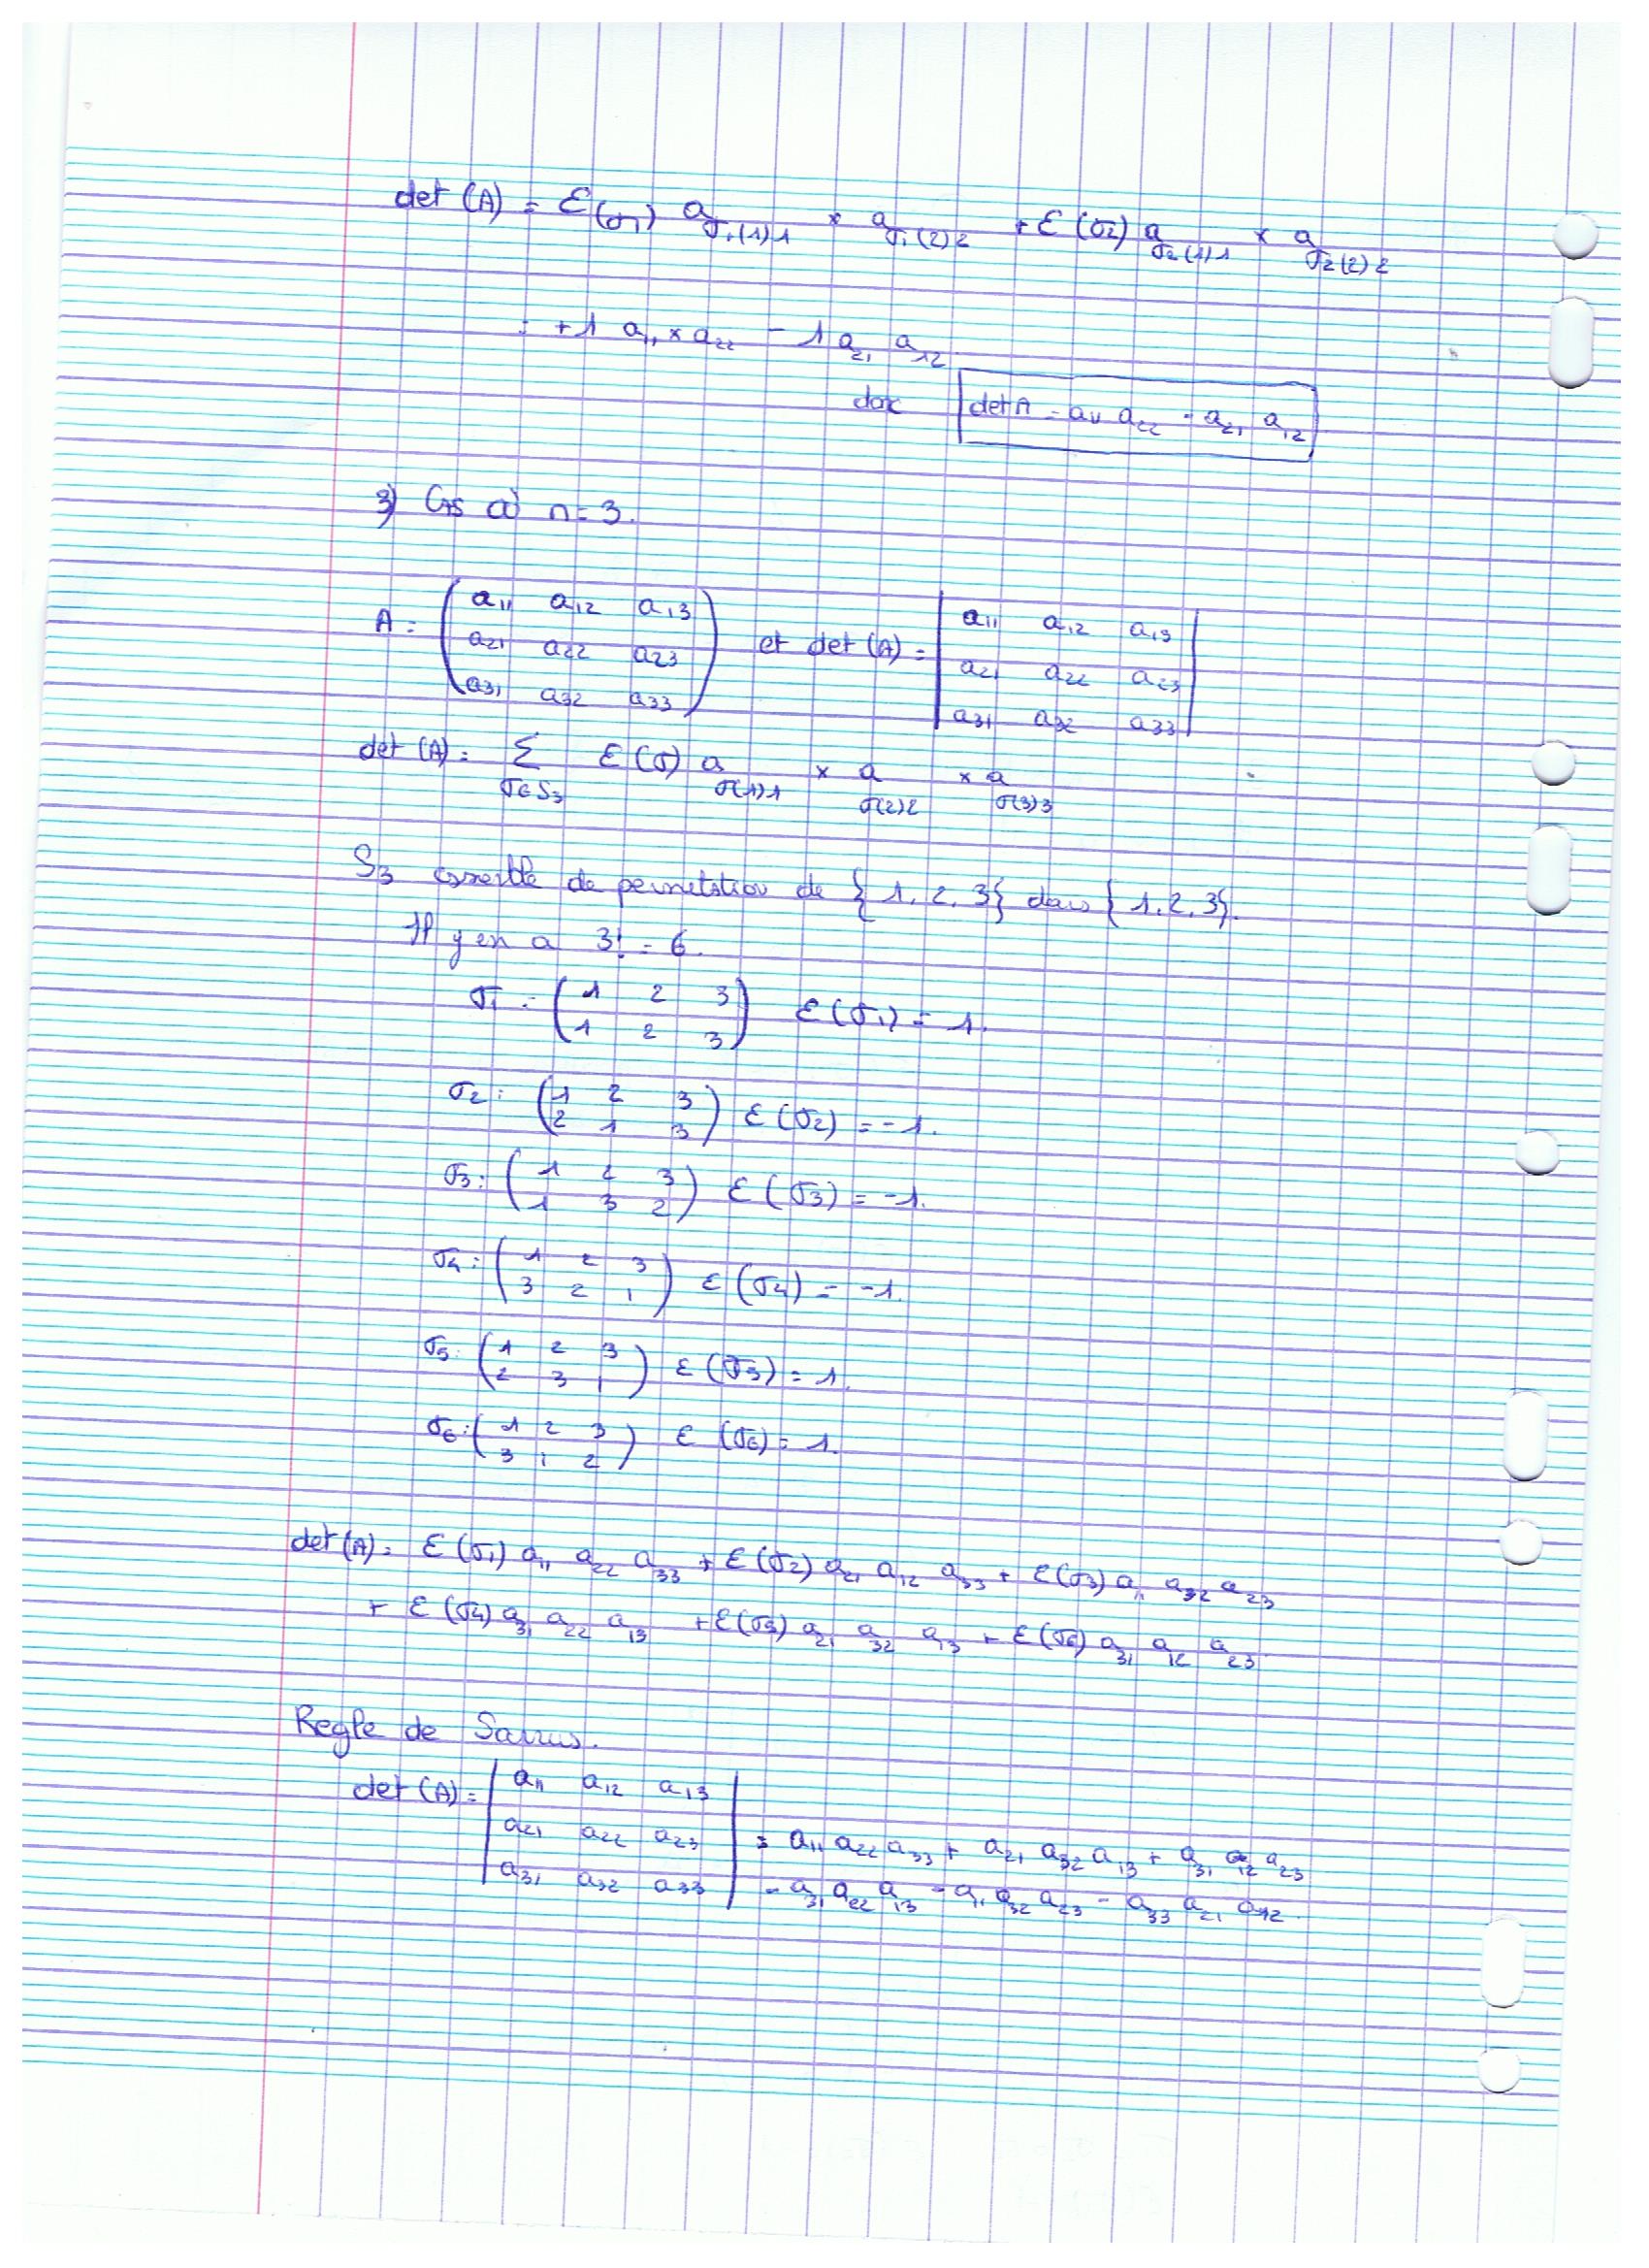 det (A) = ε(σ1) a_σ1(1)1 × a_σ1(2)2 + ε(σ2) a_σ2(1)1 × a_σ2(2)2
= +1 a11 × a22 - 1 a21 a12
donc det A = a11 a22 - a21 a12
3) Cas où n = 3.
A = ( a11 a12 a13 et det (A) = | a11 a12 a13 |
a21 a22 a23 a21 a22 a23
a31 a32 a33 ) a31 a32 a33
det (A) = Σ_σ∈S3 ε(σ) a_σ(1)1 × a_σ(2)2 × a_σ(3)3
S3 ensemble de permutation de {1, 2, 3} dans {1, 2, 3}.
Il y en a 3! = 6.
σ1 = ( 1 2 3 ) ε(σ1) = 1.
( 1 2 3 )
σ2 : ( 1 2 3 ) ε(σ2) = -1.
( 2 1 3 )
σ3 : ( 1 2 3 ) ε(σ3) = -1.
( 1 3 2 )
σ4 : ( 1 2 3 ) ε(σ4) = -1.
( 3 2 1 )
σ5 : ( 1 2 3 ) ε(σ5) = 1.
( 2 3 1 )
σ6 : ( 1 2 3 ) ε(σ6) = 1.
( 3 1 2 )
det (A) = ε(σ1) a11 a22 a33 + ε(σ2) a21 a12 a33 + ε(σ3) a11 a32 a23
+ ε(σ4) a31 a22 a13 + ε(σ5) a21 a32 a13 + ε(σ6) a31 a12 a23
Regle de Sarrus.
det (A) = | a11 a12 a13 |
| a21 a22 a23 | = a11 a22 a33 + a21 a32 a13 + a31 a12 a23
| a31 a32 a33 | - a31 a22 a13 - a11 a32 a23 - a33 a21 a12